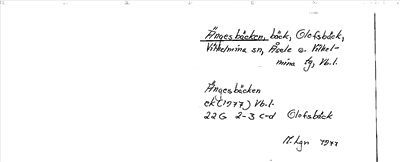 Ängesbäcken, bäck, Olofsbäck,
Vilhelmina sn, Åsele o. Vilhel-
mina tg, Vb.l.
Ängesbäcken
ek (1977) Vb.l.
22G 2-3 c-d Olofsbäck
M. Lgn 1977